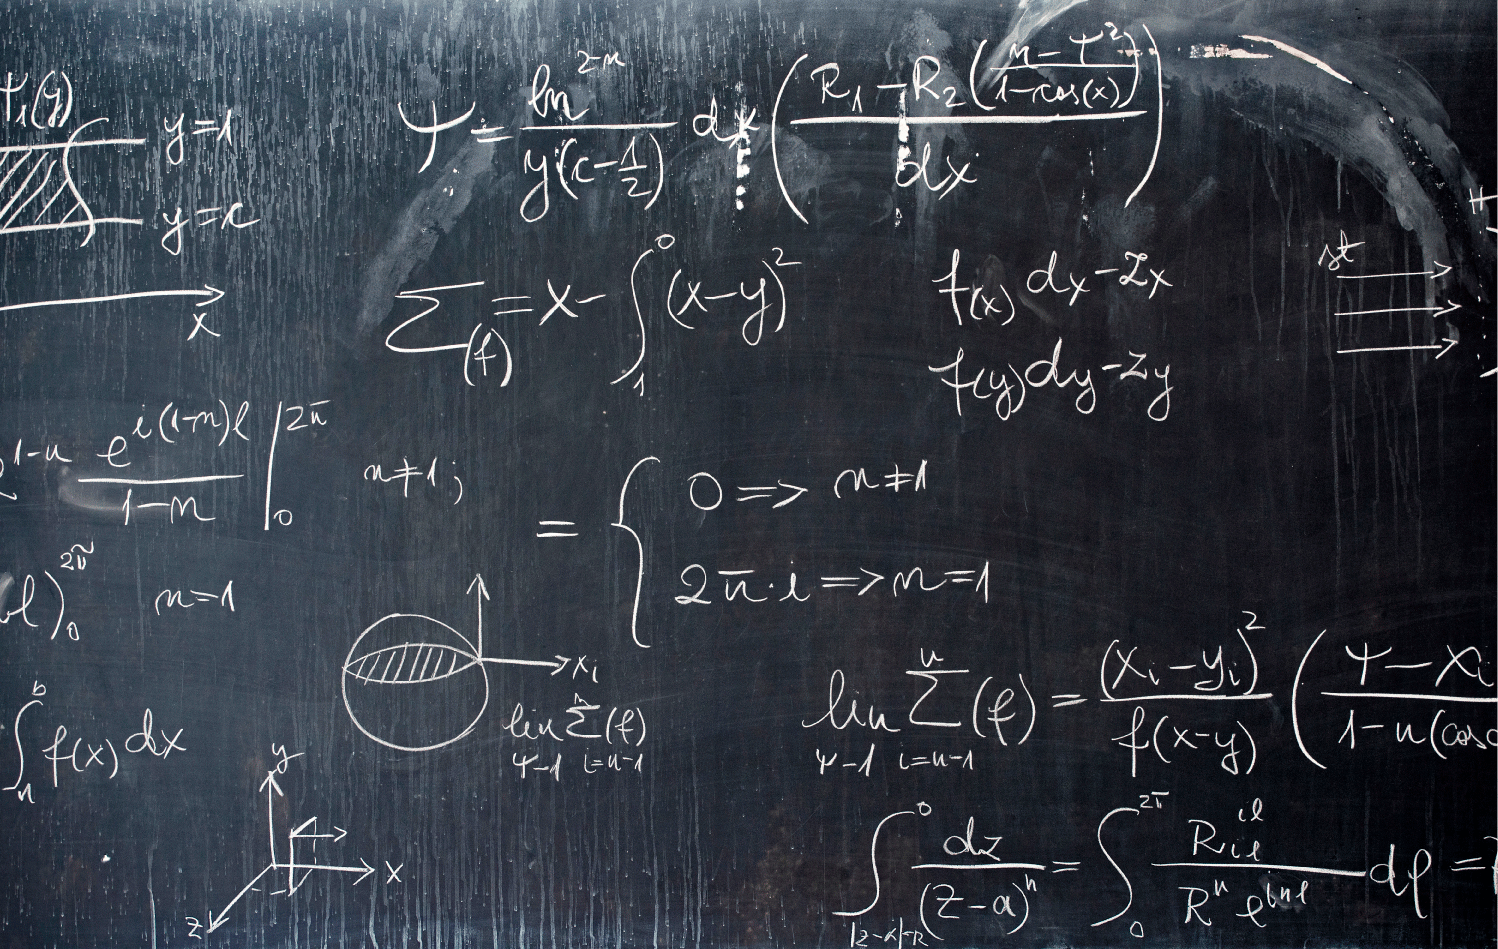 Ψ₁(y)
y=1
y=x
x
Ψ = ln^(2-n) / y(x-1/2) dx ((R₁-R₂((n-Ψ²)/(1-cos(x)))) / dx)
Σ_(f) = x-∫₁⁰(x-y)²
f(x) dx-zx
f(y) dy-zy
st
1-n e^(i(1-n)φ) / 1-n |₀^(2π) n≠1;
= { 0 => n≠1
2π·i => n=1
)₀^(2π) n=1
x_i
lim_(Ψ-1) Σ_(i=n-1)^n (f)
lim_(Ψ-1) Σ_(i=n-1)^n (f) = (x_i-y_i)² / f(x-y) (Ψ-x_i / 1-n(cos
∫_(-n)^b f(x) dx
y
x
z
∫⁰_(|z-α|=R) dz / (z-a)^n = ∫₀^(2π) R_(iφ)^(iφ) / R^n e^(inφ) dφ =